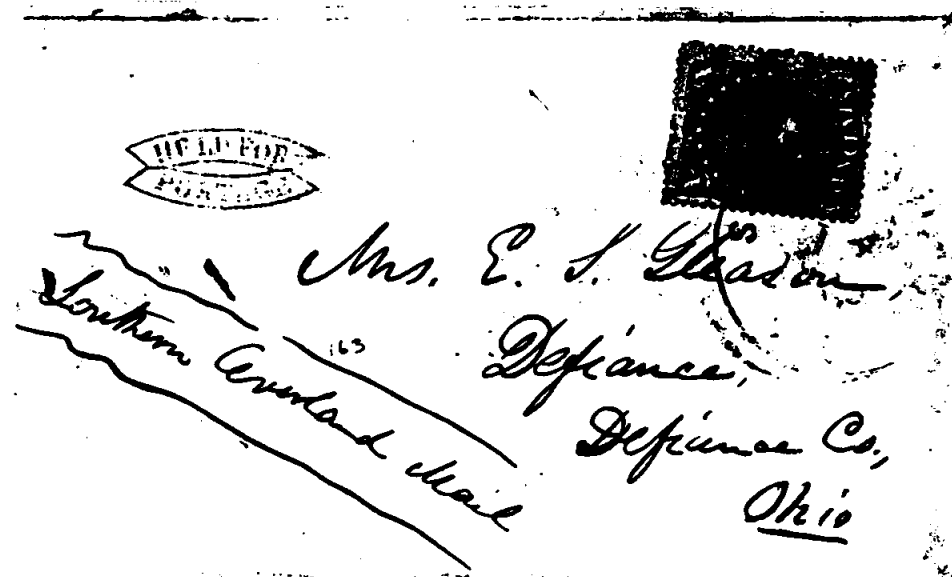 HELD FOR
POSTAGE
Mrs. E. S. Gleason,
Defiance,
Defiance Co.,
Ohio
Southern Overland Mail
163